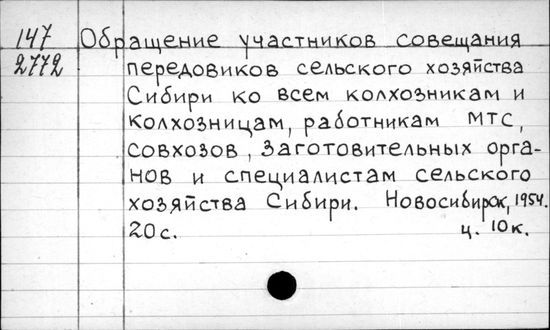 147 Обращение участников совещания
2772 передовиков сельского хозяйства
Сибири ко всем колхозникам и
колхозницам, работникам МТС,
совхозов, заготовительных орга-
нов и специалистам сельского
хозяйства Сибири. Новосибирск, 1954.
20с. ц. 10к.